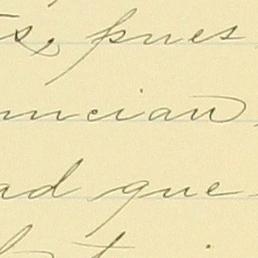 s, pues
ncian
ad que